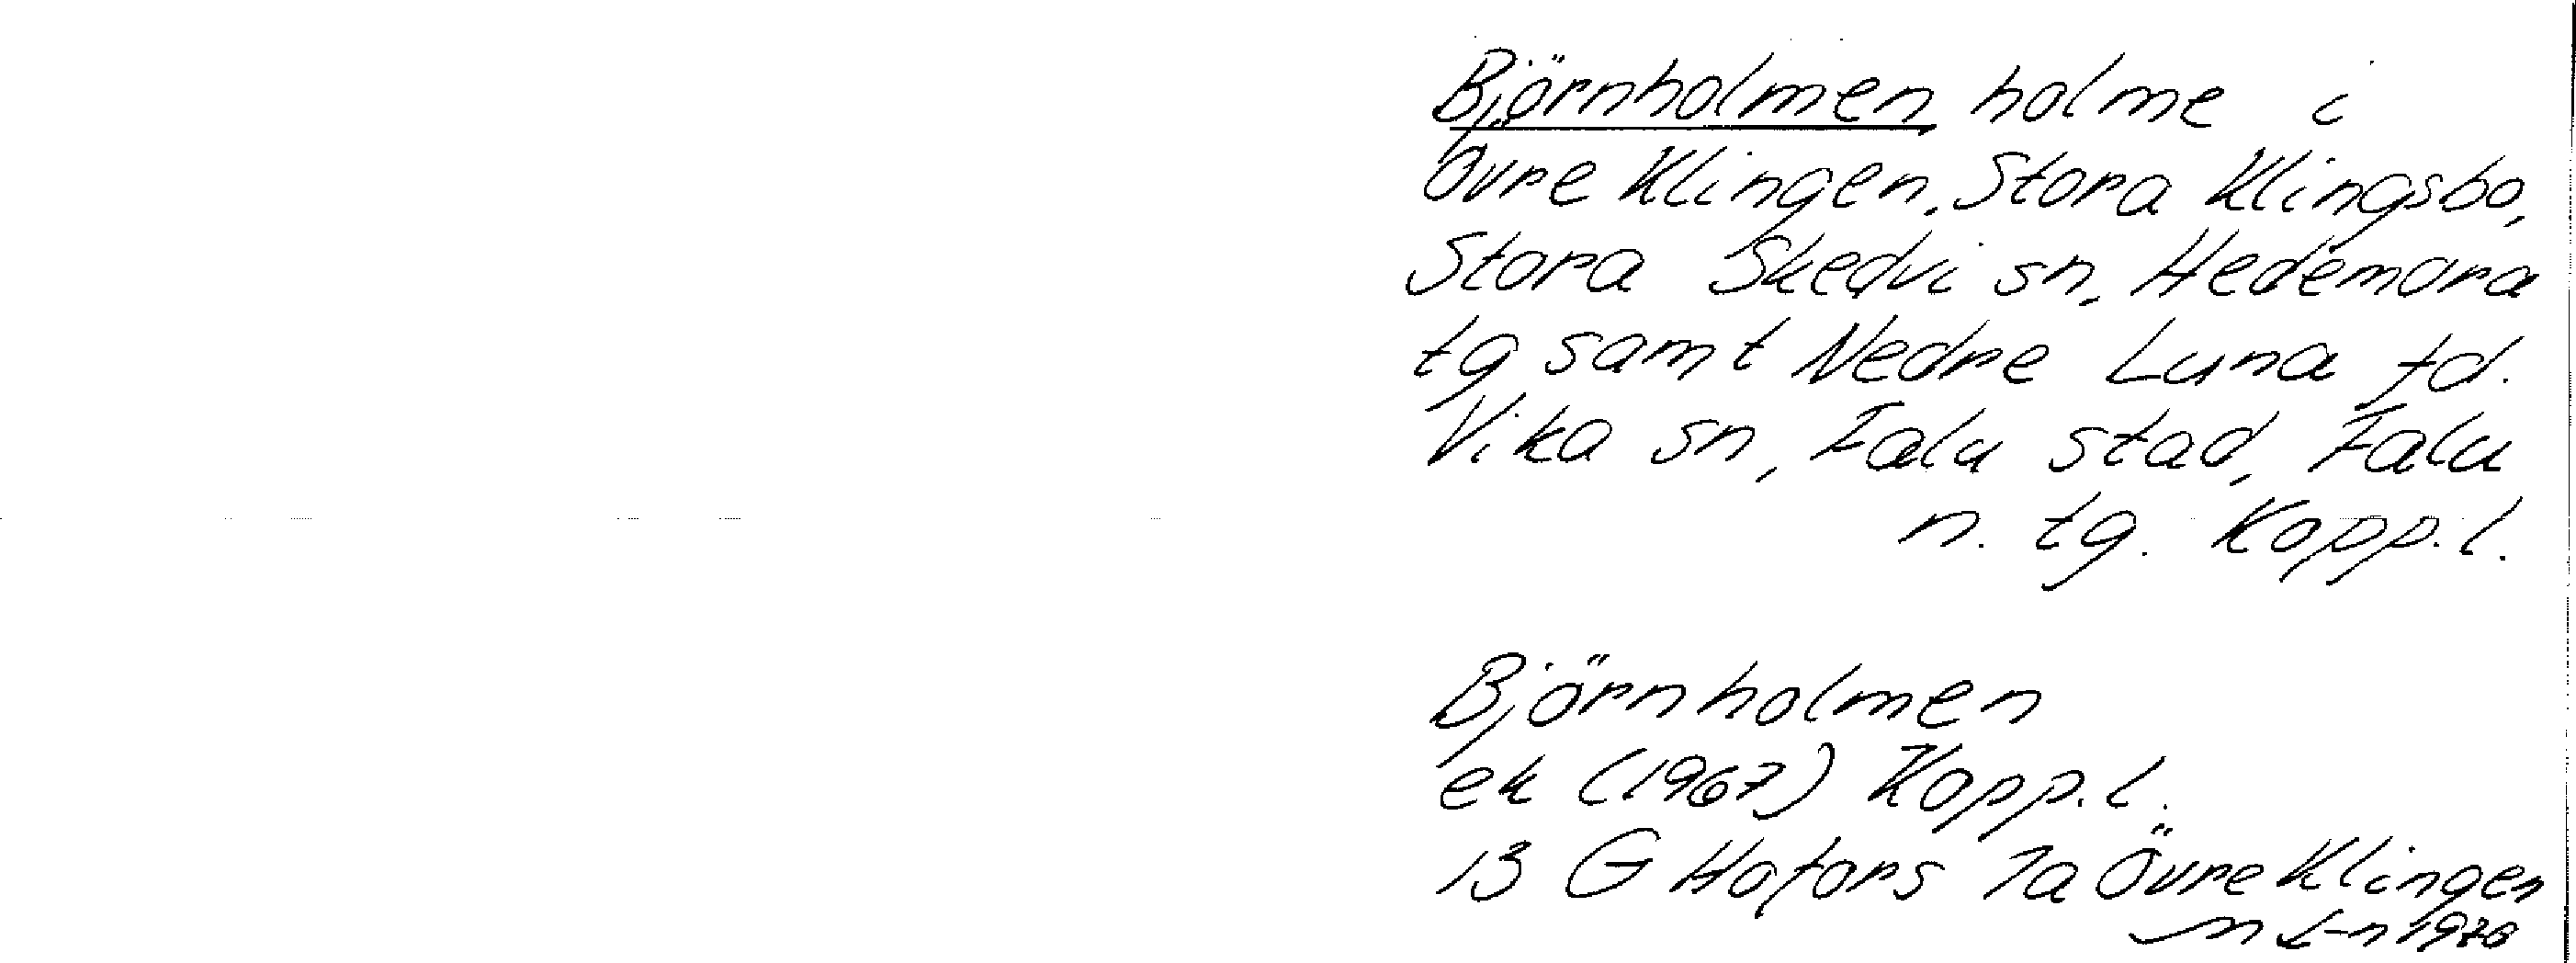 Björnholmen, holme i
Övre Klingen, Stora Klingsbo,
Stora Skedvi sn, Hedemora
tg samt Nedre Luna fd.
Vika sn, Falu stad, Falu
n. tg. Kopp. l.
Björnholmen
ek (1967) Kopp. l.
13 G Hofors 7a Övre Klingen
M L-n 1976